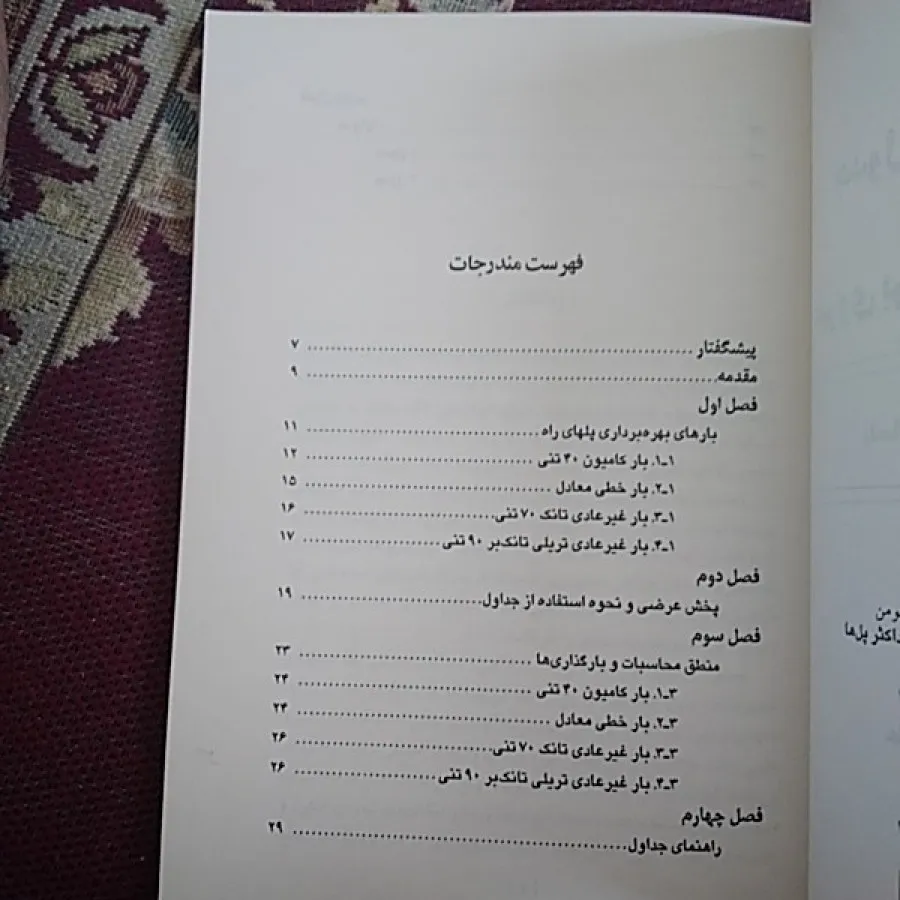 فهرست مندرجات
پیشگفتار ........ ۷
مقدمه ........ ۹
فصل اول
بارهای بهره‌برداری پلهای راه ........ ۱۱
۱ـ۱. بار کامیون ۴۰ تنی ........ ۱۲
۱ـ۲. بار خطی معادل ........ ۱۵
۱ـ۳. بار غیرعادی تانک ۷۰ تنی ........ ۱۶
۱ـ۴. بار غیرعادی تریلی تانک‌بر ۹۰ تنی ........ ۱۷
فصل دوم
پخش عرضی و نحوه استفاده از جداول ........ ۱۹
فصل سوم
منطق محاسبات و بارگذاری‌ها ........ ۲۳
۳ـ۱. بار کامیون ۴۰ تنی ........ ۲۴
۳ـ۲. بار خطی معادل ........ ۲۴
۳ـ۳. بار غیرعادی تانک ۷۰ تنی ........ ۲۶
۳ـ۴. بار غیرعادی تریلی تانک‌بر ۹۰ تنی ........ ۲۶
فصل چهارم
راهنمای جداول ........ ۲۹